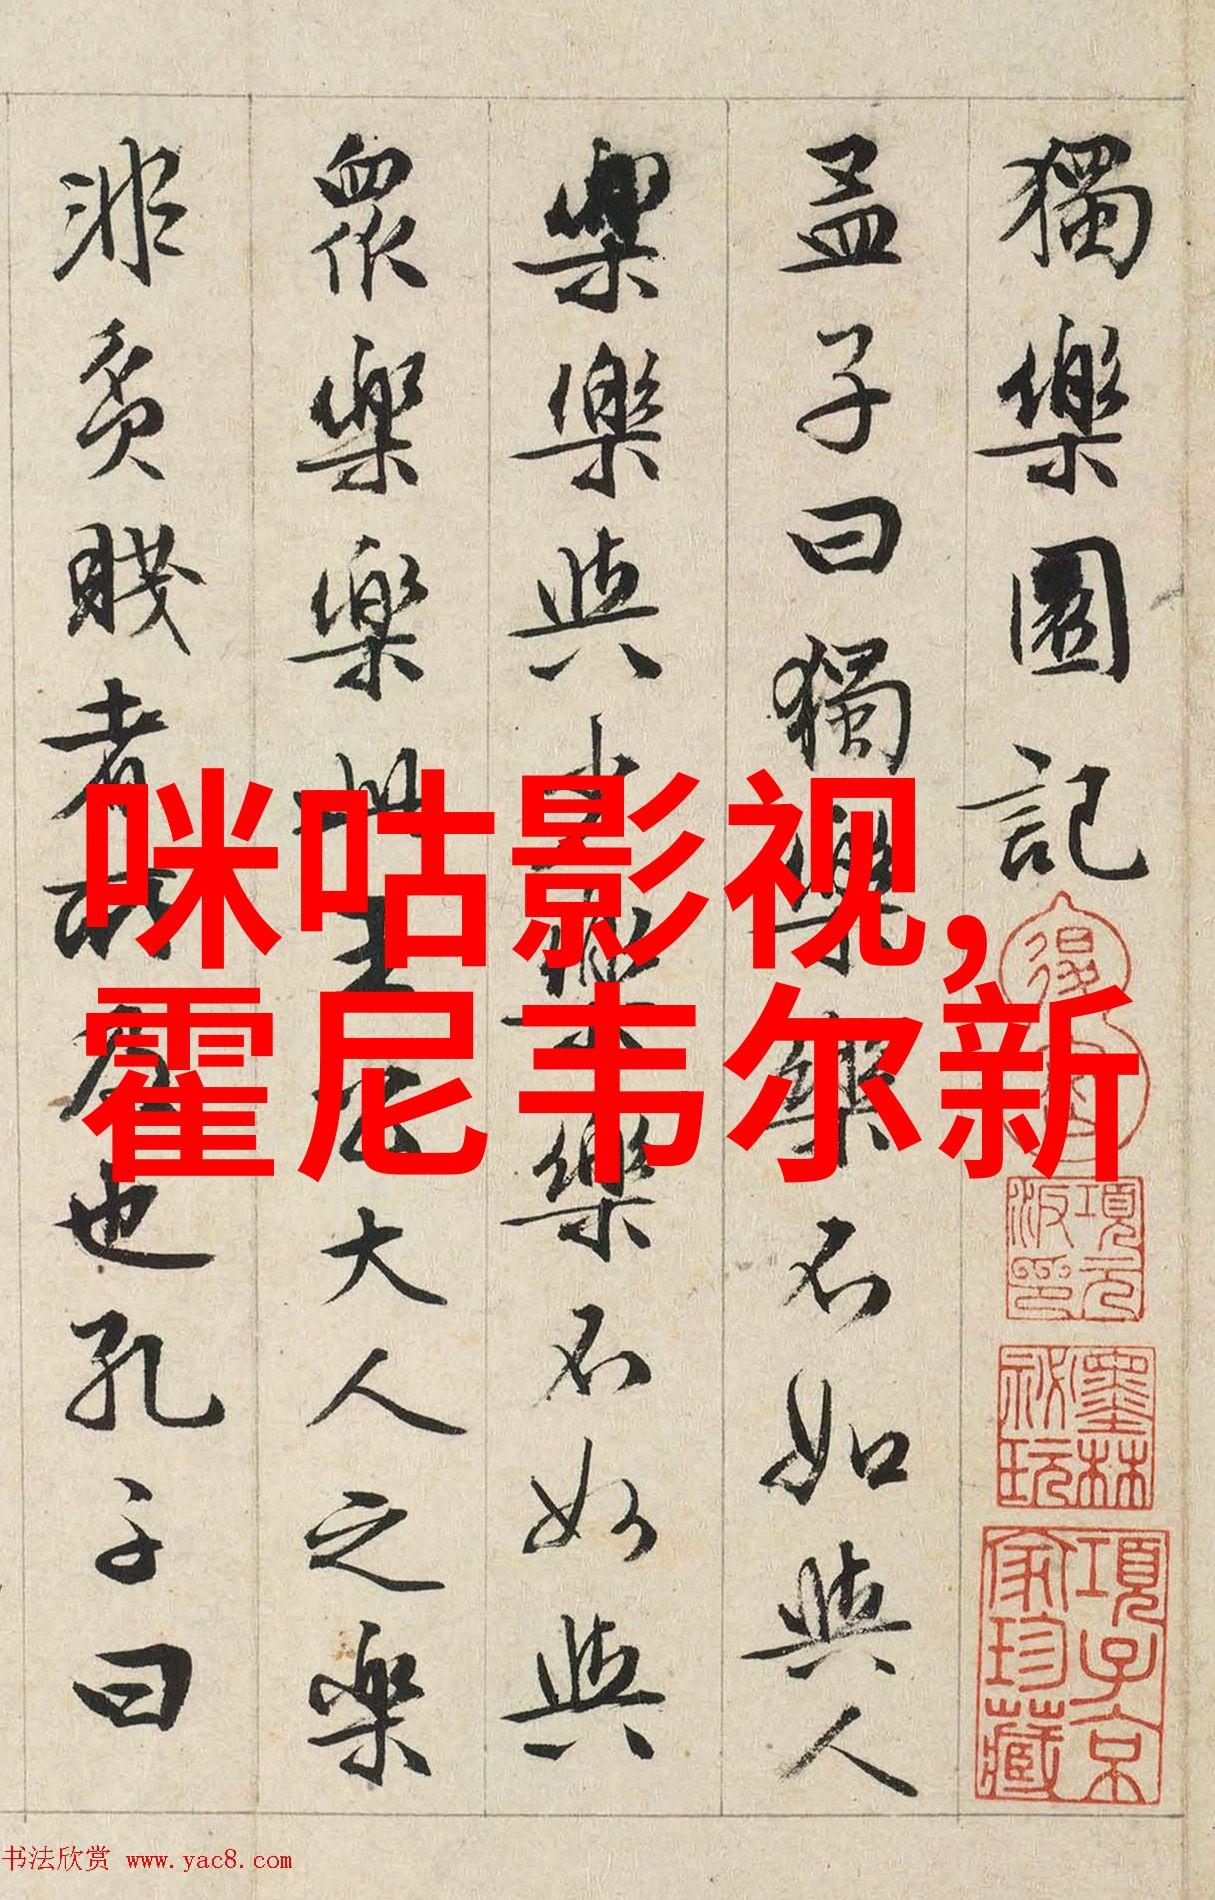 獨樂園記
孟子曰獨樂樂不如與人
樂樂與少樂樂不如與
眾樂樂此王公大人之樂
非貧賤者所及也孔子曰
咪咕影视,
霍尼韦尔新
項元汴印
墨林祕玩
項子京家珍藏
书法欣赏 www.yac8.com